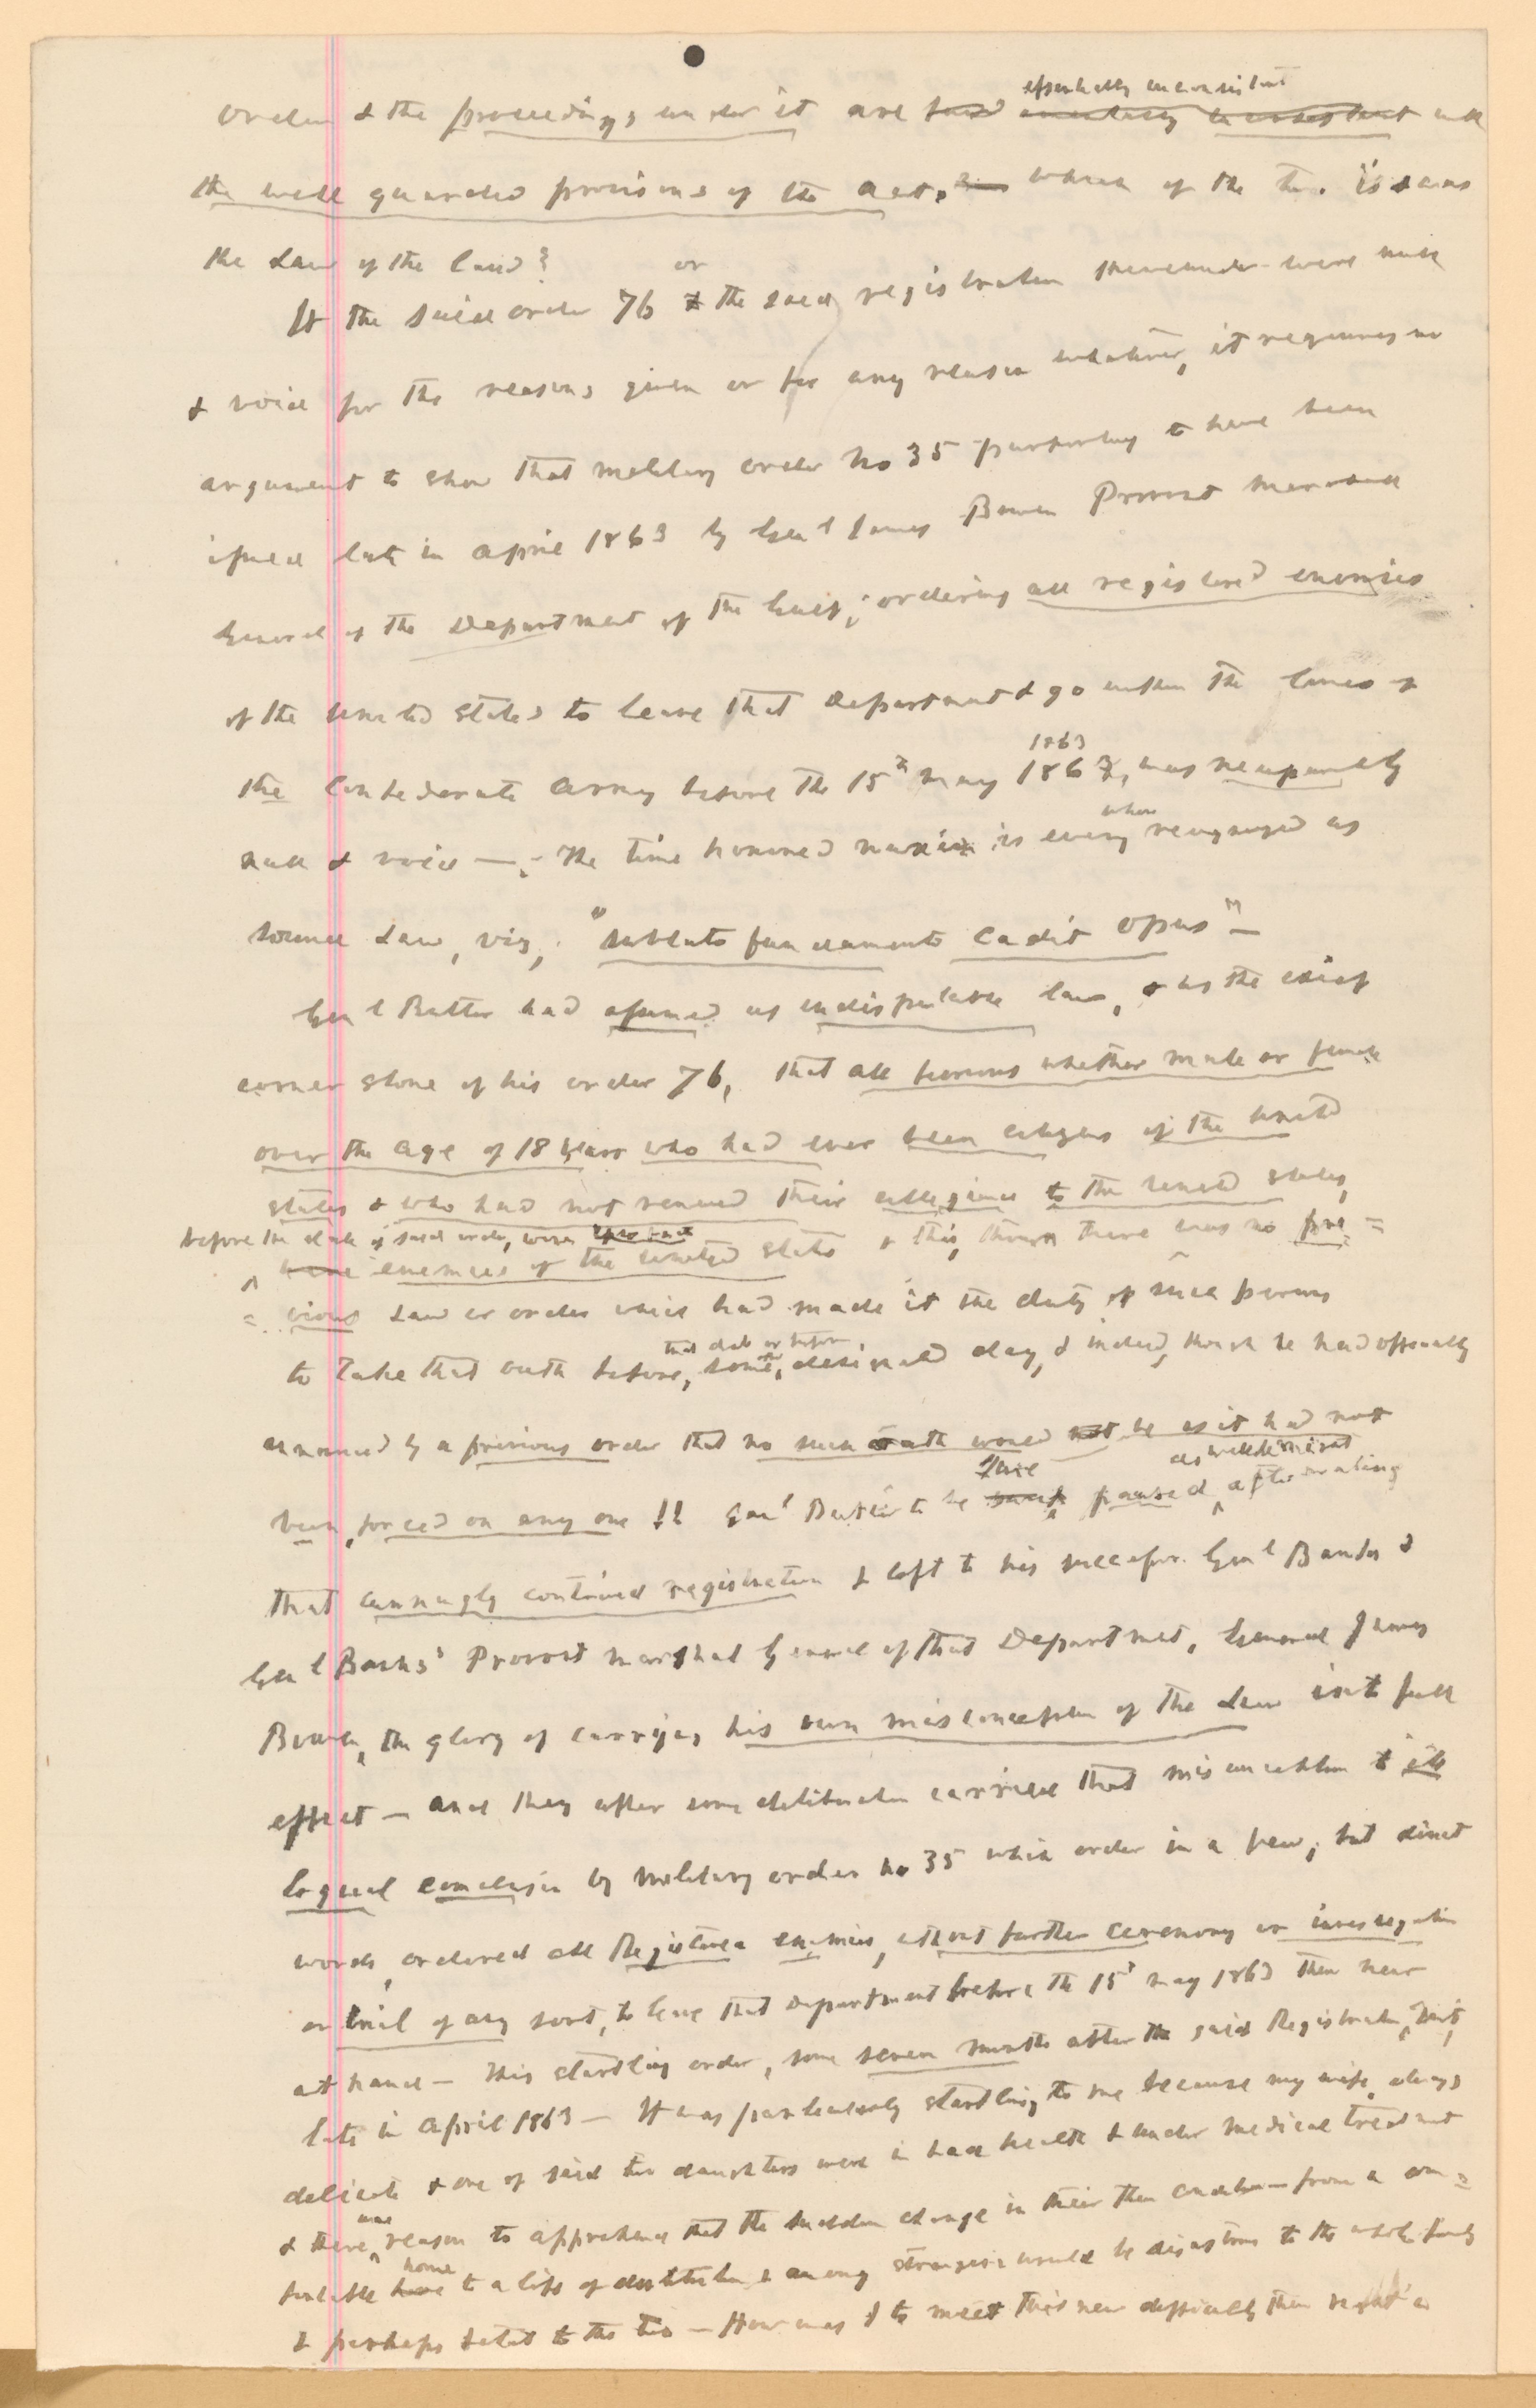 essentially inconsistent
order & the proceedings under it are with
the well guarded provisions of the act. which of the two is & was
the Law of the land?
or
If the said order 76 & the said registration thereunder were null
& void for the reasons given or for any reason whatever, it requires no
argument to show that military order No 35 purporting to have been
issued late in April 1863 by Genl James Bowen Provost Marshal
General of the Department of the Gulf, ordering all registered enemies
of the United States to leave that Department & go within the lines of
1863
the Confederate Army before the 15th May 1863, was
where
null & void — The time honored maxim is every recognized as
sound Law, viz, "sublato fundamento cadit opus" —
Genl Butler had assumed as indisputable law, & as the chief
corner stone of his order 76, that all persons whether male or female
over the age of 18 years who had ever been citizens of the United
States & who had not renewed their allegiance to the United States,
before the date of said order, were ipso facto
were enemies of the United States & this, though there was no pre =
= vious Law or order which had made it the duty of such persons
that date or before
to take that oath before, some, designated day, & indeed, though he had officially
announced by a previous order that no such oath would not be as it had not
there as well he might
been, forced on any one !! Genl Butler paused, after making
that cunningly contrived registration & left to his successor Genl Banks &
Genl Banks' Provost Marshal General of that Department, General James
Bowen, the glory of carrying his own misconception of the Law into full
effect — and they after some deliberation carried that misconception to its
logical conclusion by military order No 35 which order in a few, but direct
words, ordered all Registered enemies, without further ceremony or investigation
or trial of any sort, to leave that Department before the 15th May 1863 then near
at hand — This startling order, some seven months after the said Registration,
late in April 1863 — It was particularly startling to me because my wife, always
delicate & one of said two daughters were in bad health & under medical treatment
was
& there reason to apprehend that the sudden change in their then condition — from a com =
home
fortable to a life of destitution & among strangers would be disastrous to the whole family
& perhaps fatal to the two — How was I to meet this new difficulty then